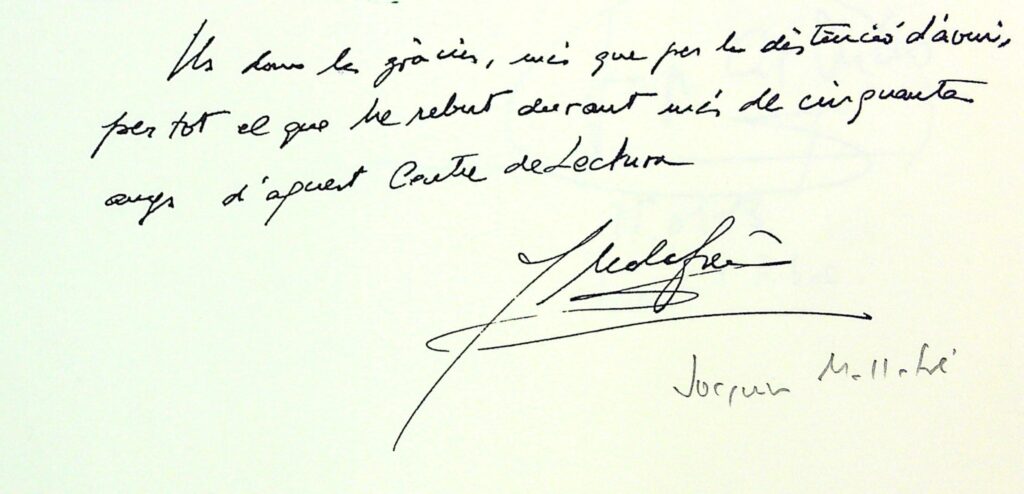 Us dono les gràcies, més que per la distinció d'avui,
per tot el que he rebut durant més de cinquanta
anys d'aquest Centre de Lectura
Joaquim Mallafrè